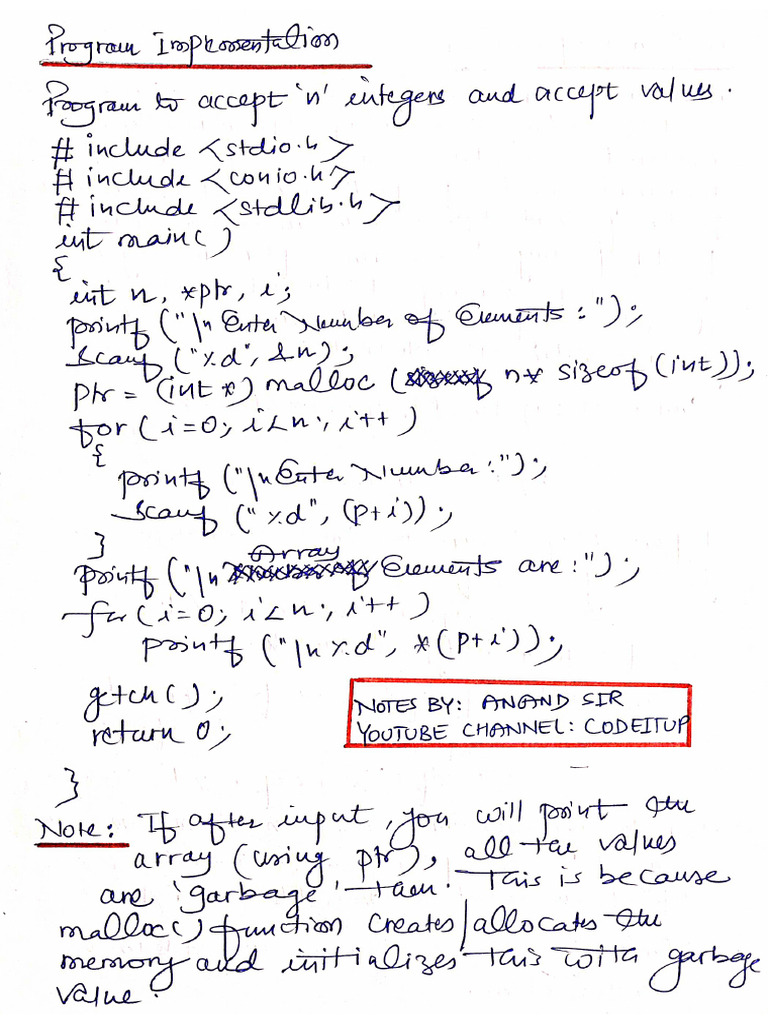 Program Implementation
Program to accept 'n' integers and accept values.
# include <stdio.h>
# include <conio.h>
# include <stdlib.h>
int main()
{
int n, *ptr, i;
printf ("\n Enter Number of Elements :");
scanf ("%d", &n);
ptr = (int *) malloc ( n* sizeof (int));
for ( i=0; i<n; i++ )
{
printf ("\n Enter Number :");
scanf ("%d", (p+i));
}
printf ("\n Array Elements are :");
for (i=0; i<n; i++)
printf ("\n %d", *(p+i));
getch();
return 0;
NOTES BY: ANAND SIR
YOUTUBE CHANNEL: CODEITUP
}
Note: If after input, you will print the
array (using ptr), all the values
are 'garbage' then. This is because
malloc() function creates/allocates the
memory and initializes this with garbage
value.